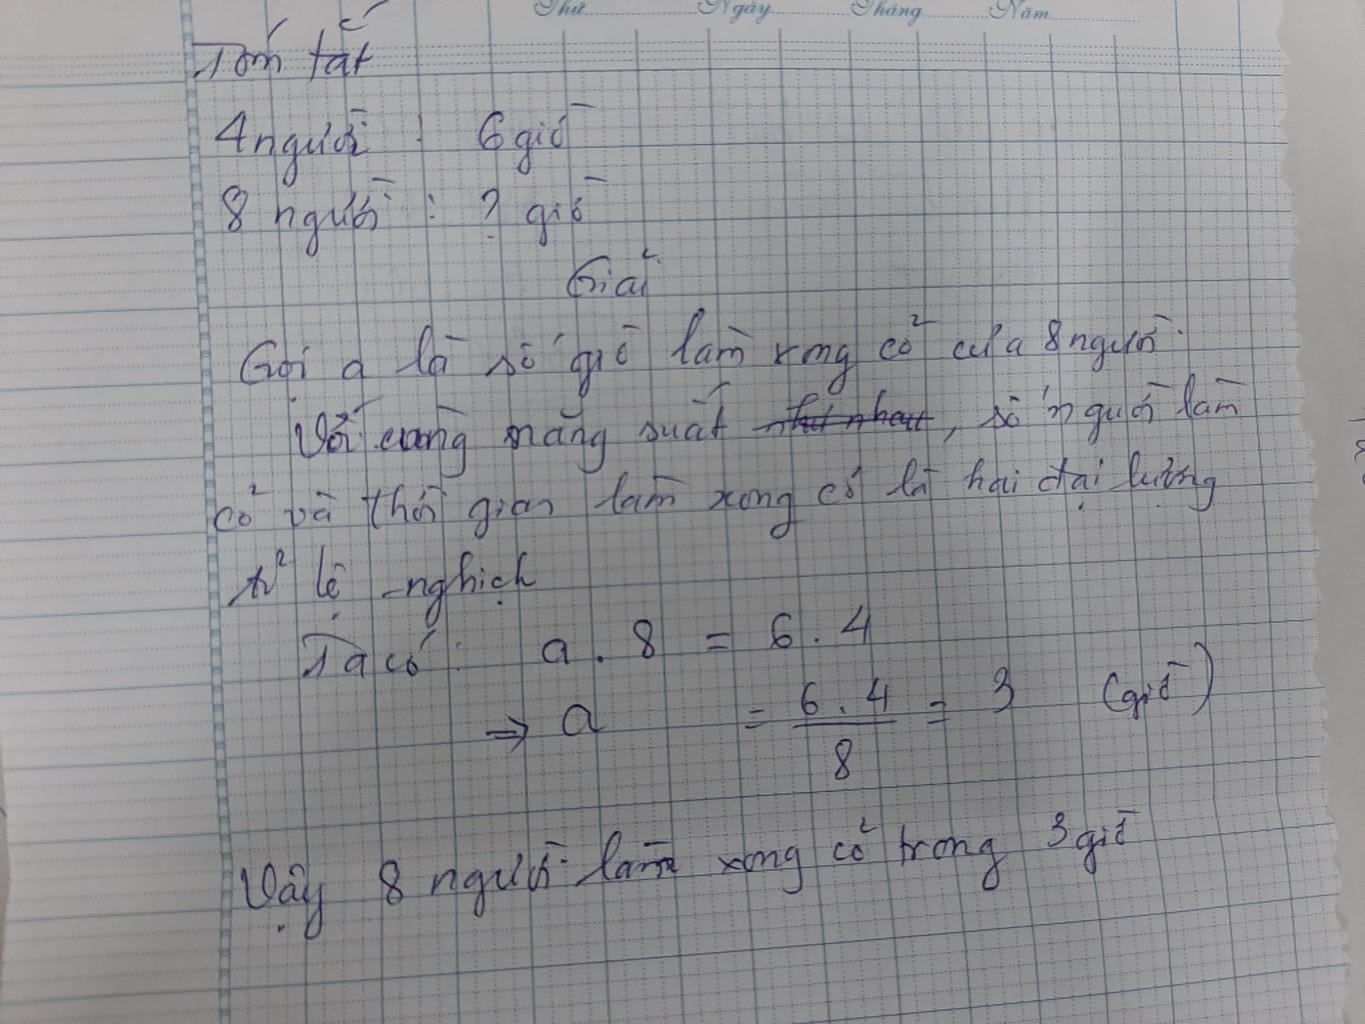 Thứ Ngày Tháng Năm
Tóm tắt
4 người : 6 giờ
8 người : ? giờ
Giải
Gọi a là số giờ làm xong cỏ của 8 người.
Với cùng năng suất như nhau, số người làm
cỏ và thời gian làm xong cỏ là hai đại lượng
tỉ lệ nghịch
Ta có: a . 8 = 6 . 4
⇒ a = \frac{6 . 4}{8} = 3 (giờ)
Vậy 8 người làm xong cỏ trong 3 giờ